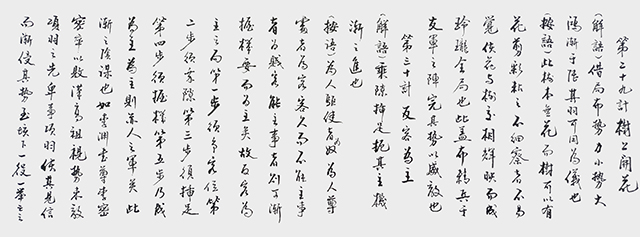 第二十九计樹上開花
(解語)借局布勢力小勢大
鴻漸于陸其羽可用為儀也
(按語)此樹本無花而樹可以有
花剪彩粘之不細察者不易
覺使花与樹交相輝映而成
玲瓏全局也此蓋布精兵于
友軍之陣完其勢以威敵也
第三十計 反客為主
(解語)乘隙插足扼其主機
漸之進也
(按語)為人驅使者奴為人尊
處者為客客久而不能主事
者為賤客能主事者則可漸
握機要而為主矣故反客為
主之局第一步須爭客位第
二步須乘隙第三步須插足
第四步須握機第五步乃成
為主為主則並人之軍矣此
漸之陰謀也如李淵書尊李密
密卒以敗漢高祖視勢未敵
項羽之先卑事項羽使其見信
而漸侵其勢至垓下一役一舉亡之